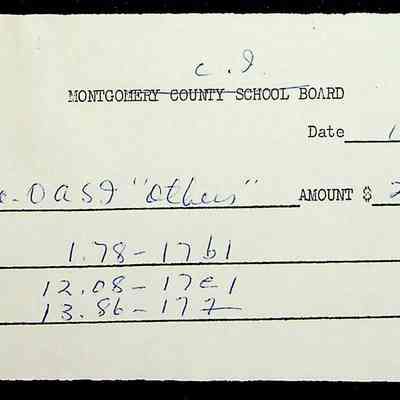 C. I.
MONTGOMERY COUNTY SCHOOL BOARD
Date 1
OASI "Others" AMOUNT $ 2
1.78 - 17b1
12.08 - 17e1
13.86 - 17